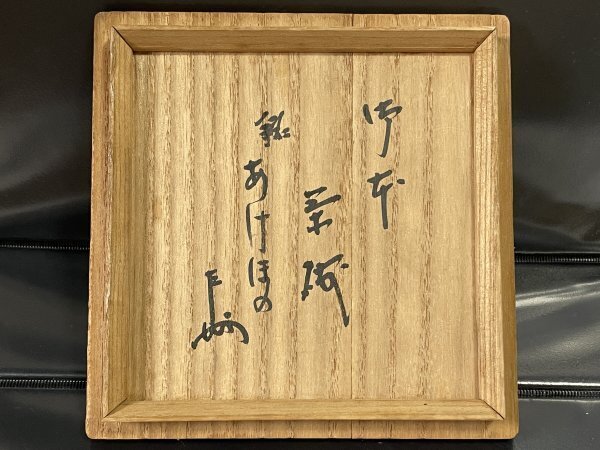 御本
茶碗
銘 あけほの